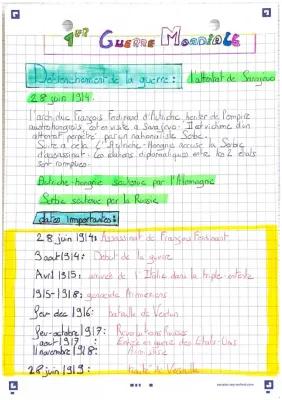 1ER GUERRE MONDIALE
Déclenchement de la guerre: l'attentat de Sarajevo
28 juin 1914.
l'archiduc François Ferdinand d'Autriche héritier de l'empire
austro hongrois, est en visite à Sarajevo. Il est victime d'un
attentat perpétré par un nationaliste Serbe.
Suite a cela l'Autriche-Hongrie accuse la Serbie
d'assassinat. Les relations diplomatiques entre les 2 états
sont rompues.
Autriche-hongrie soutenue par l'Allemagne
Serbie soutenue par la Russie
dates importantes:
28 juin 1914: Assassinat de François Ferdinand
3 aout 1914: Début de la guerre
Avril 1915: arrivée de l'Italie dans la triple-entente
1915-1918: génocide Arméniens
fev-dec 1916: bataille de Verdun
fev-octobre 1917: Revolutions Russes
aout 1917: Entrée en guerre des Etats-Unis
11 novembre 1918: Armistice
28 juin 1919: traité de Versaille